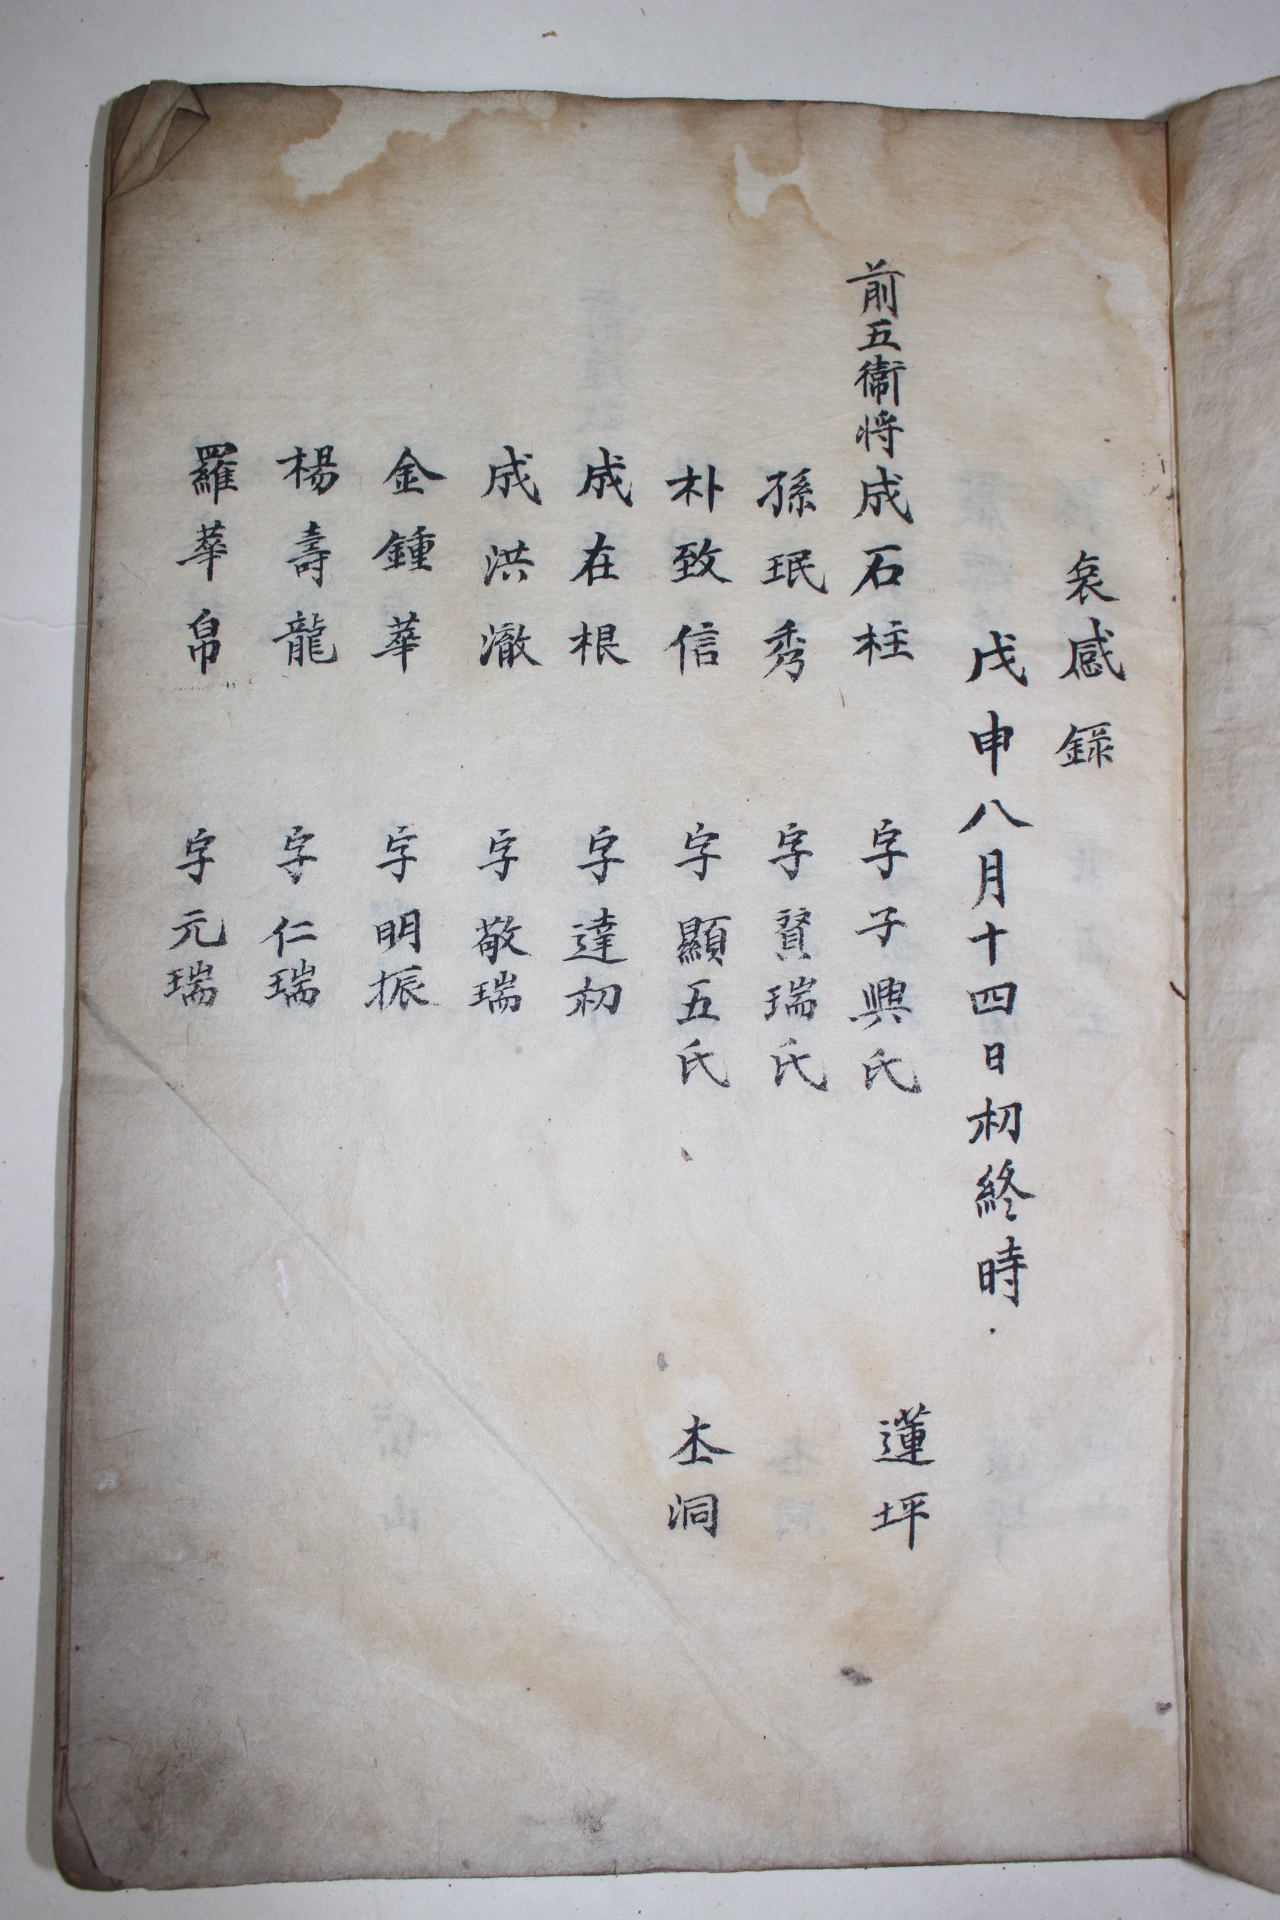 哀感錄
戊申八月十四日初終時
前五衞將成石柱 字子興氏 蓮坪
孫珉秀 字賛瑞氏
朴致信 字顯五氏 杢洞
成在根 字達初
成洪澈 字敬瑞
金鍾華 字明振
楊壽龍 字仁瑞
羅華帛 字元瑞